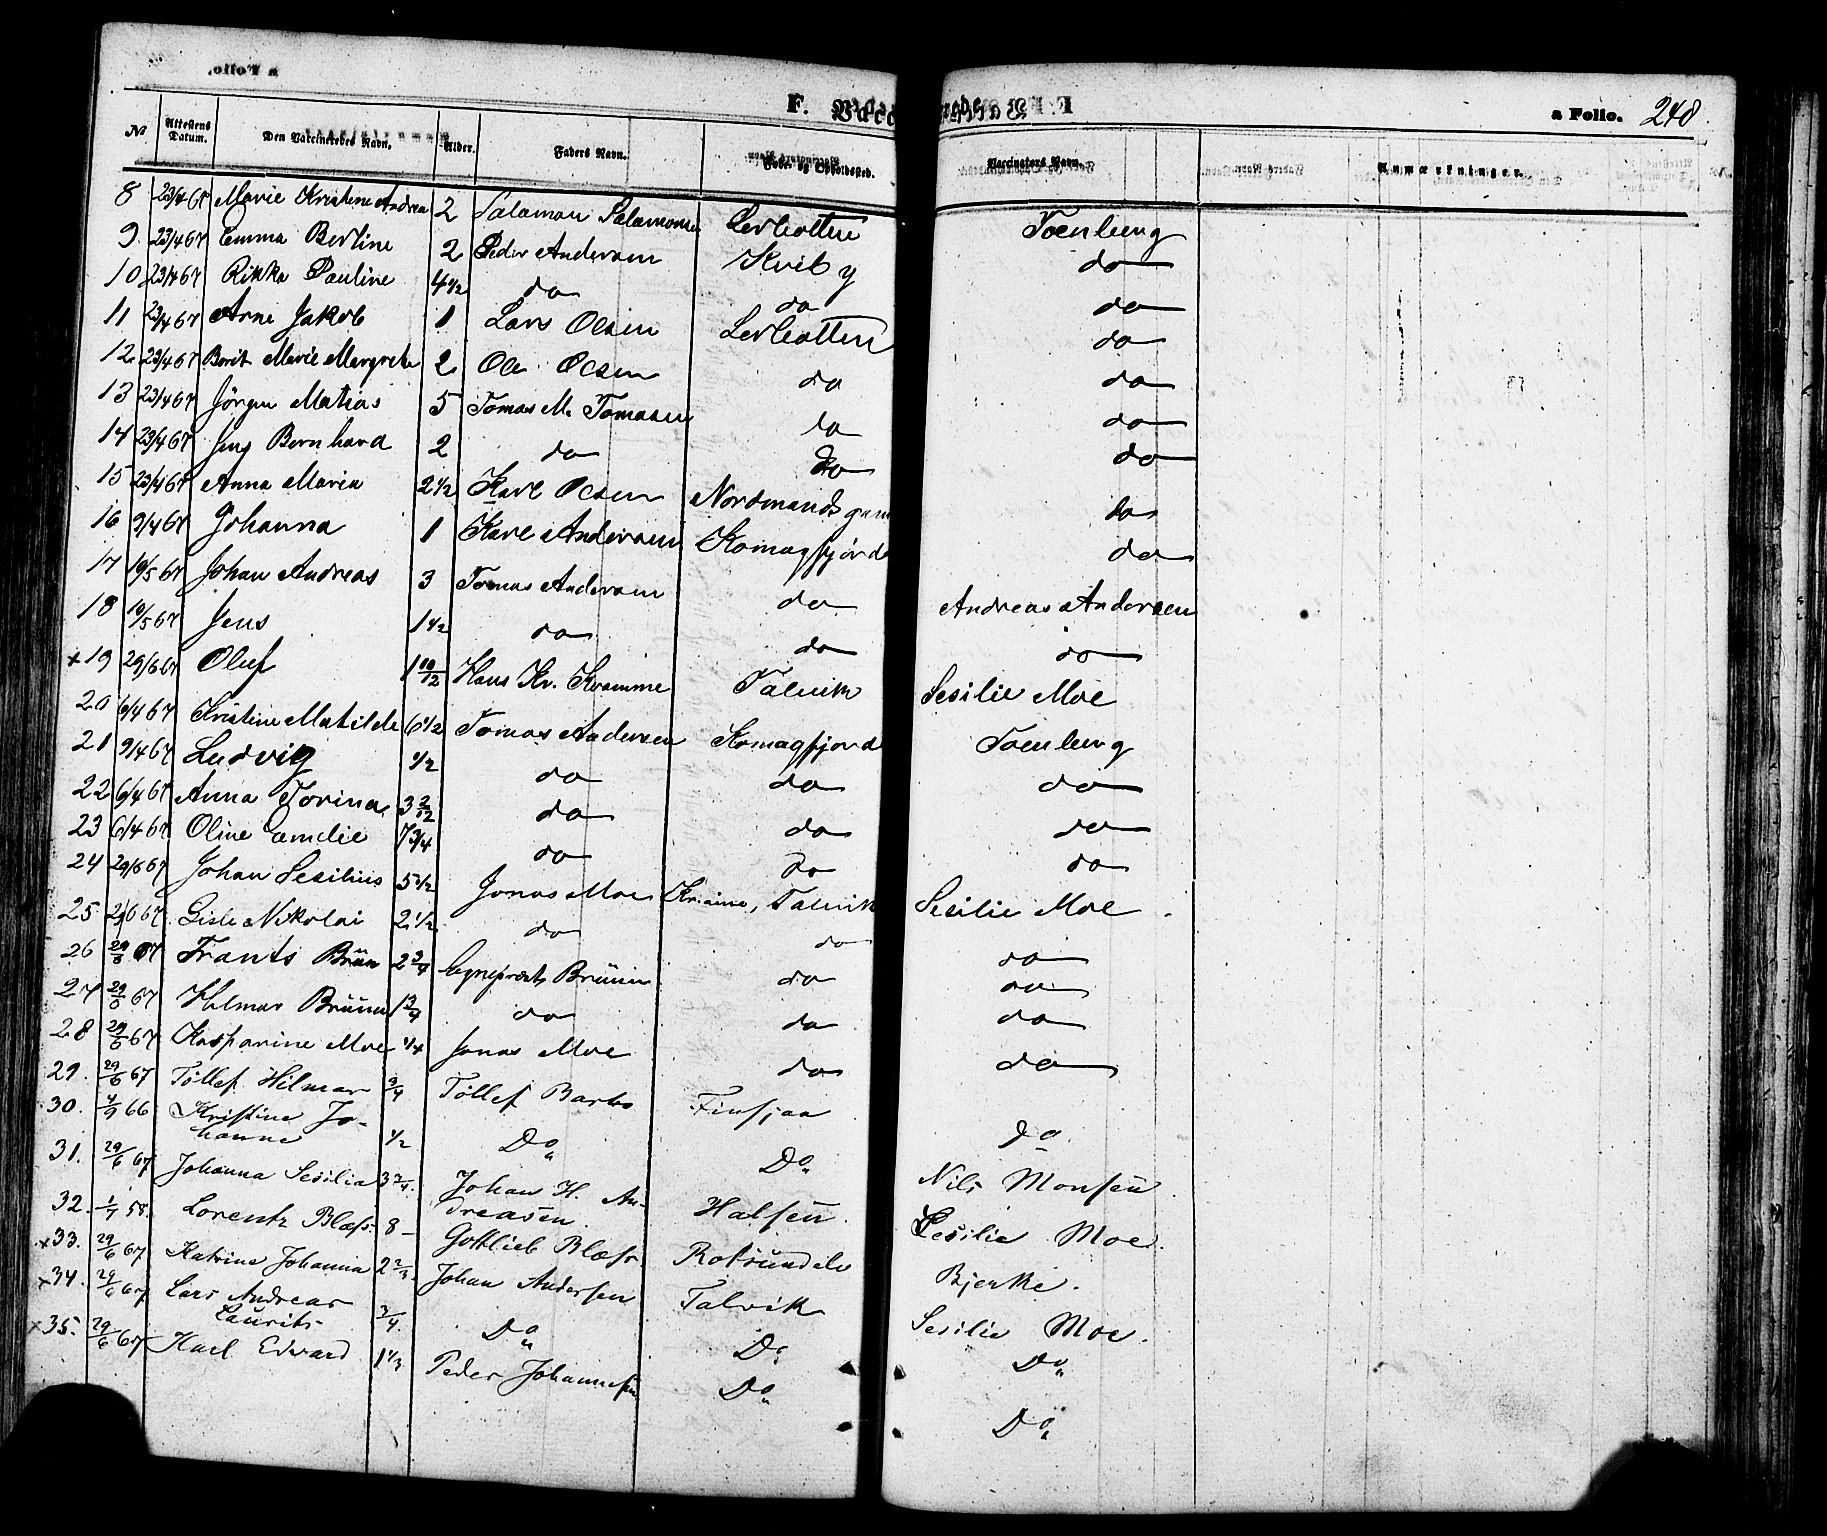 F. Vacc
a Folio. 248
No Attestens Datum. Den Vaccineredes Navn. Alder. Faders Navn. Føde- og Opholdssted. Vaccinators Navn. Anmærkninger.
8 23/4 67 Marie Kristine Andrea 2 Salamon Salamonsen Lerbotten Toenberg
9. 23/4 67 Emma Bertine 2 Peder Andersen Kviby do
10 23/4 67 Rikka Pauline 4 1/2 do do do
11 23/4 67 Arne Jakob 1 Lars Olsen Lerbotten do
12. 23/4 67 Berit Marie Margrete 2 Ole Olsen do do
13 23/4 67 Jörgen Matias 5 Tomas M. Tomasen do do
14 23/4 67 Jens Bernhard 2 do do do
15 23/4 67 Anna Maria 2 1/2 Karl Olsen Nordmands do
16 9/4 67 Johanna 1 Karl Andersen Komagfjord do
17 10/5 67 Johan Andreas 3 Tomas Andersen do Andreas Andersen
18 10/5 67 Jens 1 1/2 do do do
x 19 29/6 67 Oluf 1 10/12 Hans Kr. Kramme Talvik Sesilie Moe
20 6/4 67 Kristine Matilde 6 1/2 Tomas Andersen Komagfjord Toenberg
21 9/4 67 Ludvig 1/2 do do do
22 6/4 67 Anna Torina 3 2/12 do do do
23 6/4 67 Oline Emelie 7 3/4 do do do
24 29/6 67 Johan Sesilius 5 1/2 Jonas Moe Talvik Sesilie Moe.
25 29/6 67 Nikolai 2 1/2 do do do
26 29/6 67 Frants Brün 2 3/4 Brüun do do
27 29/6 67 Hilmar Brüun 1 3/4 do do do
28 29/6 67 Kasparine Moe 1/4 Jonas Moe do do
29. 29/6 67 Töllef Hilmar 3/4 Töllef Barbo Finsjaa do.
30. 4/9 66 Kristine Jo-
hanne 1/2 Do Do Nils Monsen
31. 29/6 67 Johanna Sesilia 3 3/4. Johan H. An-
dreasen. Halsen. Sesilie Moe.
32. 1/7 58. Lorentz Blæss. 8 - Gottlieb Blæss Rotsundele Bjerke.
x 33. 29/6 67 Katrine Johanna 2 2/3 Johan Andersen Talvik Sesilie Moe.
x 34. 29/6 67 Lars Andreas
Laurits 3/4. Do Do Do
x 35. 29/6 67 Karl Edvard 1 1/3 Peder Johannesen Do Do